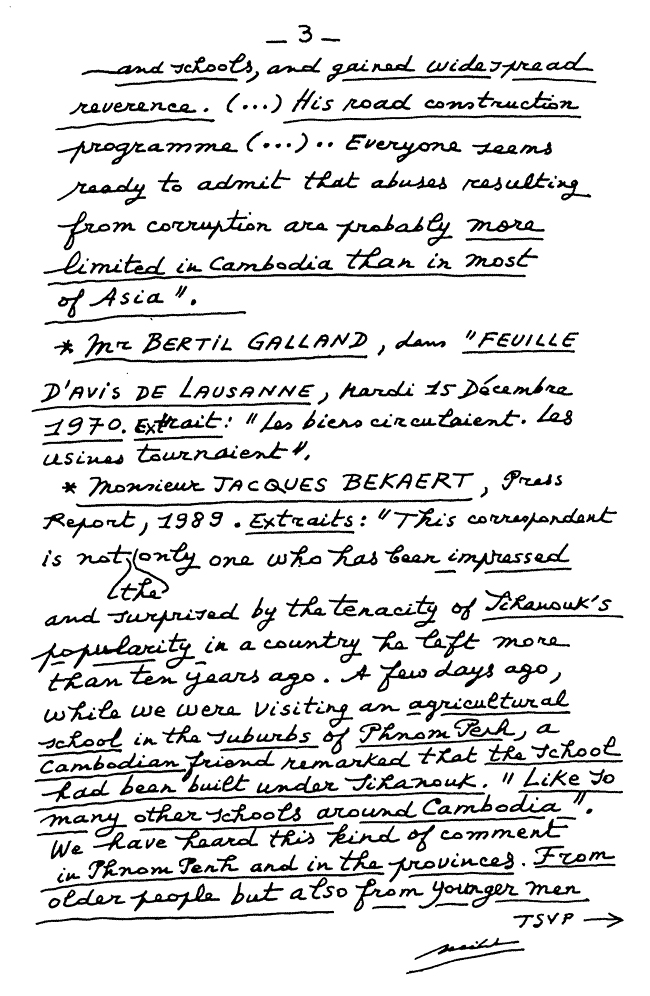 — 3 —
and schools, and gained widespread
reverence. (...) His road construction
programme (...).. Everyone seems
ready to admit that abuses resulting
from corruption are probably more
limited in Cambodia than in most
of Asia".
* Mr BERTIL GALLAND, dans "FEUILLE
D'AVIS DE LAUSANNE, Mardi 15 Décembre
1970. Extrait: "Les biens circulaient. Les
usines tournaient".
* Monsieur JACQUES BEKAERT, Press
Report, 1989. Extraits: "This correspondent
is not the only one who has been impressed
and surprised by the tenacity of Sihanouk's
popularity in a country he left more
than ten years ago. A few days ago,
while we were visiting an agricultural
school in the suburbs of Phnom Penh, a
Cambodian friend remarked that the school
had been built under Sihanouk. "Like so
many other schools around Cambodia".
We have heard this kind of comment
in Phnom Penh and in the provinces. From
older people but also from younger men
TSVP →